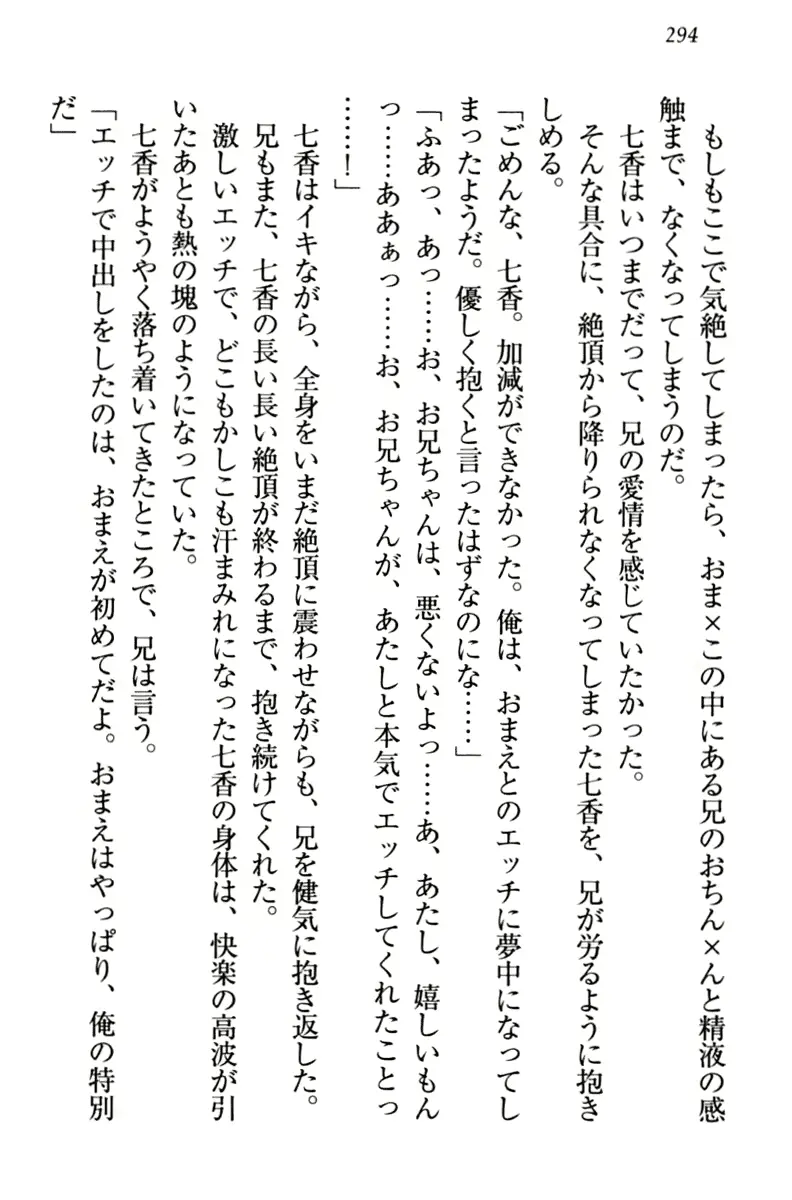 294
もしもここで気絶してしまったら、おま×この中にある兄のおちん×んと精液の感
触まで、なくなってしまうのだ。
七香はいつまでだって、兄の愛情を感じていたかった。
そんな具合に、絶頂から降りられなくなってしまった七香を、兄が労るように抱き
しめる。
「ごめんな、七香。加減ができなかった。俺は、おまえとのエッチに夢中になってし
まったようだ。優しく抱くと言ったはずなのにな……」
「ふあっ、あっ……お、お兄ちゃんは、悪くないよっ……あ、あたし、嬉しいもん
っ……ああぁっ……お、お兄ちゃんが、あたしと本気でエッチしてくれたことっ
……！」
七香はイキながら、全身をいまだ絶頂に震わせながらも、兄を健気に抱き返した。
兄もまた、七香の長い長い絶頂が終わるまで、抱き続けてくれた。
激しいエッチで、どこもかしこも汗まみれになった七香の身体は、快楽の高波が引
いたあとも熱の塊のようになっていた。
七香がようやく落ち着いてきたところで、兄は言う。
「エッチで中出しをしたのは、おまえが初めてだよ。おまえはやっぱり、俺の特別
だ」